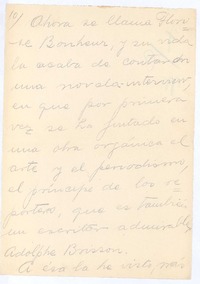 10/ Ahora se llama Flori-
se Bonheur, y su vida
la acaba de contar en
una novela-interview,
en que por primera
vez se ha juntado en
una obra orgánica el
arte y el periodismo,
el príncipe de los re-
pórters, que es también
un escritor admirable,
Adolphe Brisson.
A esa la he visto más